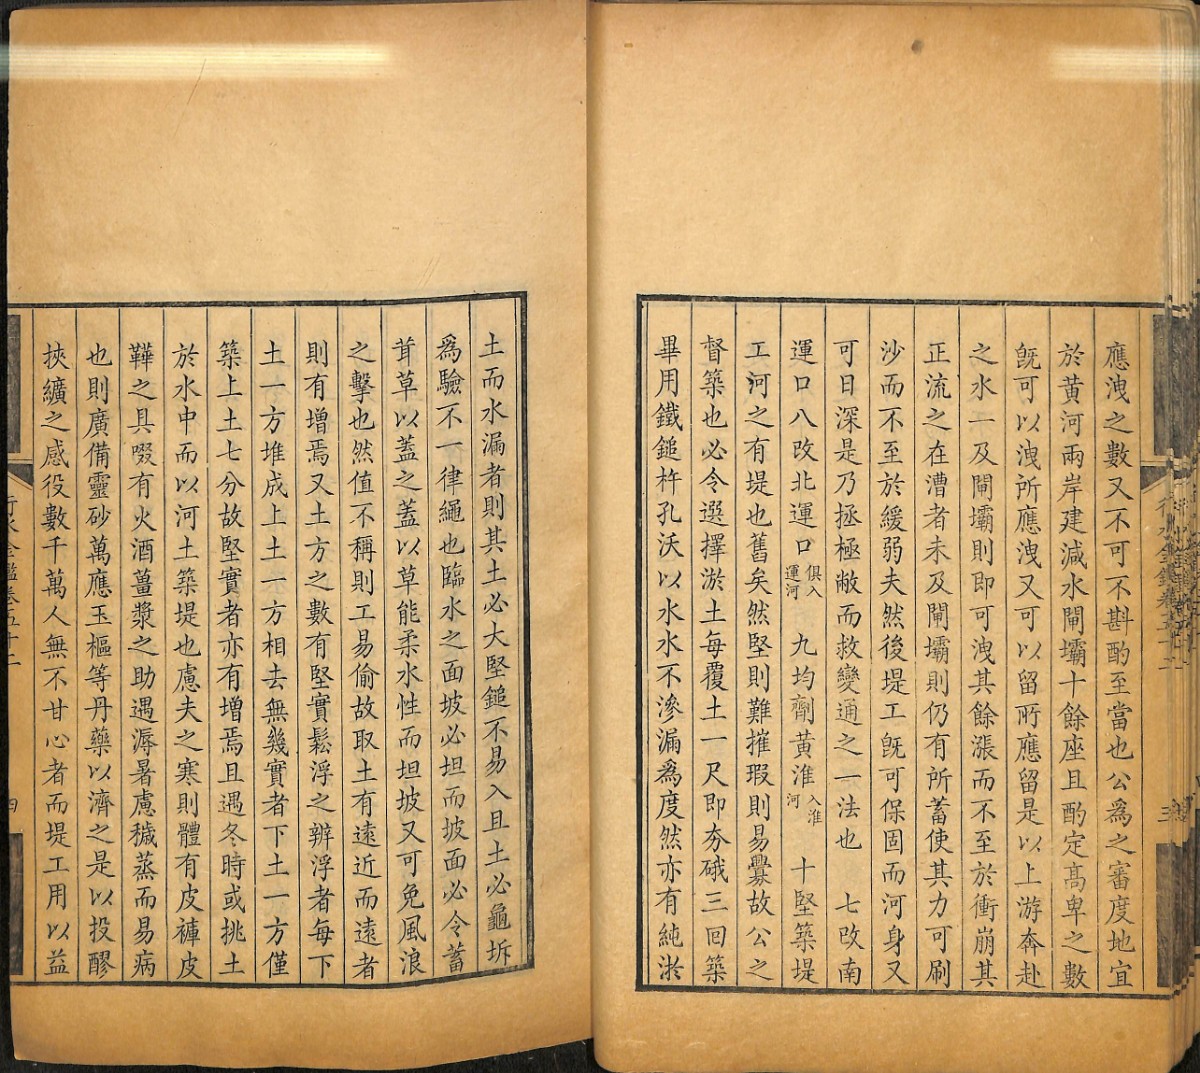 應洩之數又不可不斟酌至當也公爲之審度地宜
於黃河兩岸建減水閘壩十餘座且酌定高卑之數
旣可以洩所應洩又可以留所應留是以上游奔赴
之水一及閘壩則即可洩其餘漲而不至於衝崩其
正流之在漕者未及閘壩則仍有所蓄使其力可刷
沙而不至於緩弱夫然後堤工旣可保固而河身又
可日深是乃拯極敝而救變通之一法也 七改南
運口八改北運口俱入運河 九均劑黃淮入淮河 十堅築堤
工河之有堤也舊矣然堅則難摧瑕則易釁故公之
督築也必令選擇淤土每覆土一尺即夯硪三回築
畢用鐵鎚杵孔沃以水水不滲漏爲度然亦有純淤
土而水漏者則其土必大堅鎚不易入且土必龜坼
爲驗不一律繩也臨水之面坡必坦而坡面必令蓄
茸草以蓋之蓋以草能柔水性而坦坡又可免風浪
之擊也然值不稱則工易偷故取土有遠近而遠者
則有增焉又土方之數有堅實鬆浮之辨浮者每下
土一方堆成上土一方相去無幾實者下土一方僅
築上土七分故堅實者亦有增焉且遇冬時或挑土
於水中而以河土築堤也慮夫之寒則體有皮褲皮
鞾之具啜有火酒薑漿之助遇溽暑慮穢蒸而易病
也則廣備靈砂萬應玉樞等丹藥以濟之是以投醪
挾纊之感役數千萬人無不甘心者而堤工用以益
行水金鑑卷五十二
四